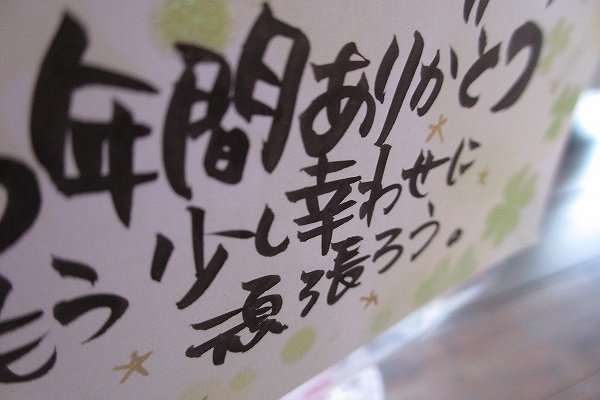 年間ありがとう
もう少し幸わせに
頑張ろう。